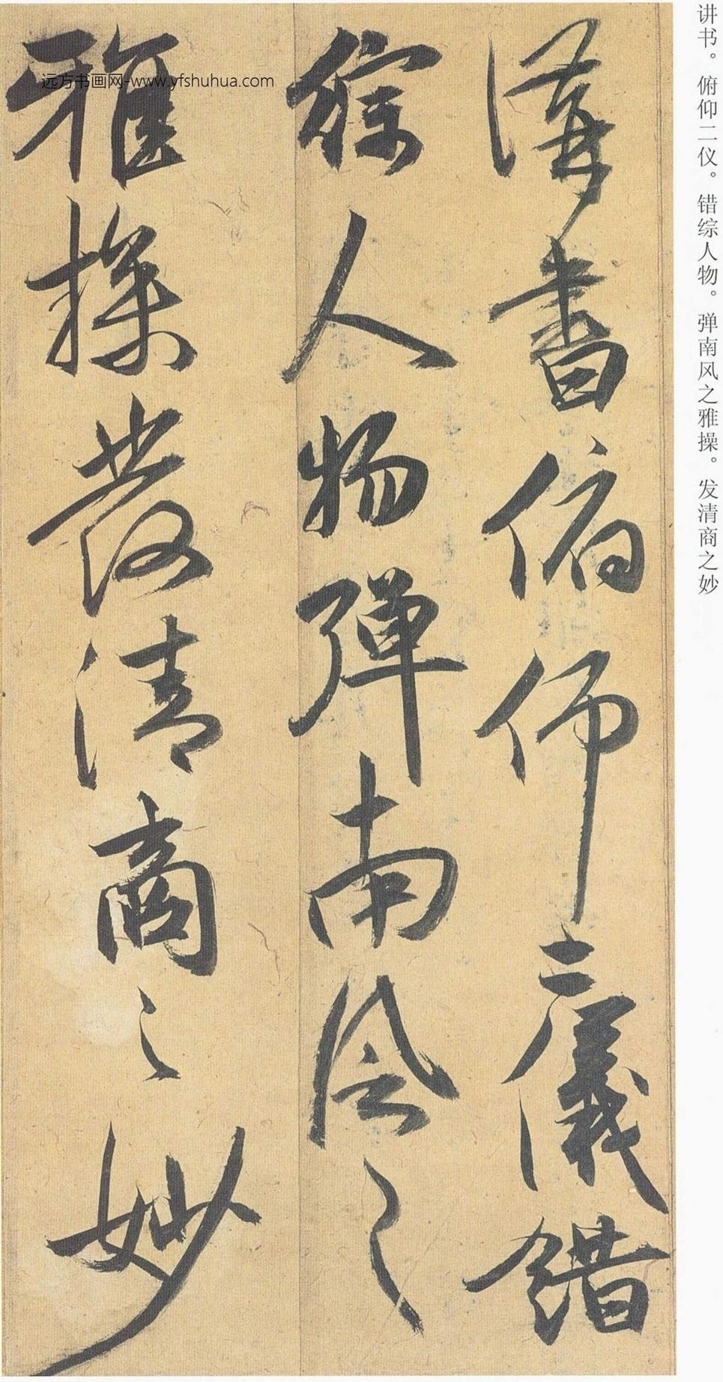 讲书。俯仰二仪。错综人物。弹南风之雅操。发清商之妙
講書俯仰二儀錯
綜人物彈南風之
雅操發清商之妙
远方书画网-www.yfshuhua.com